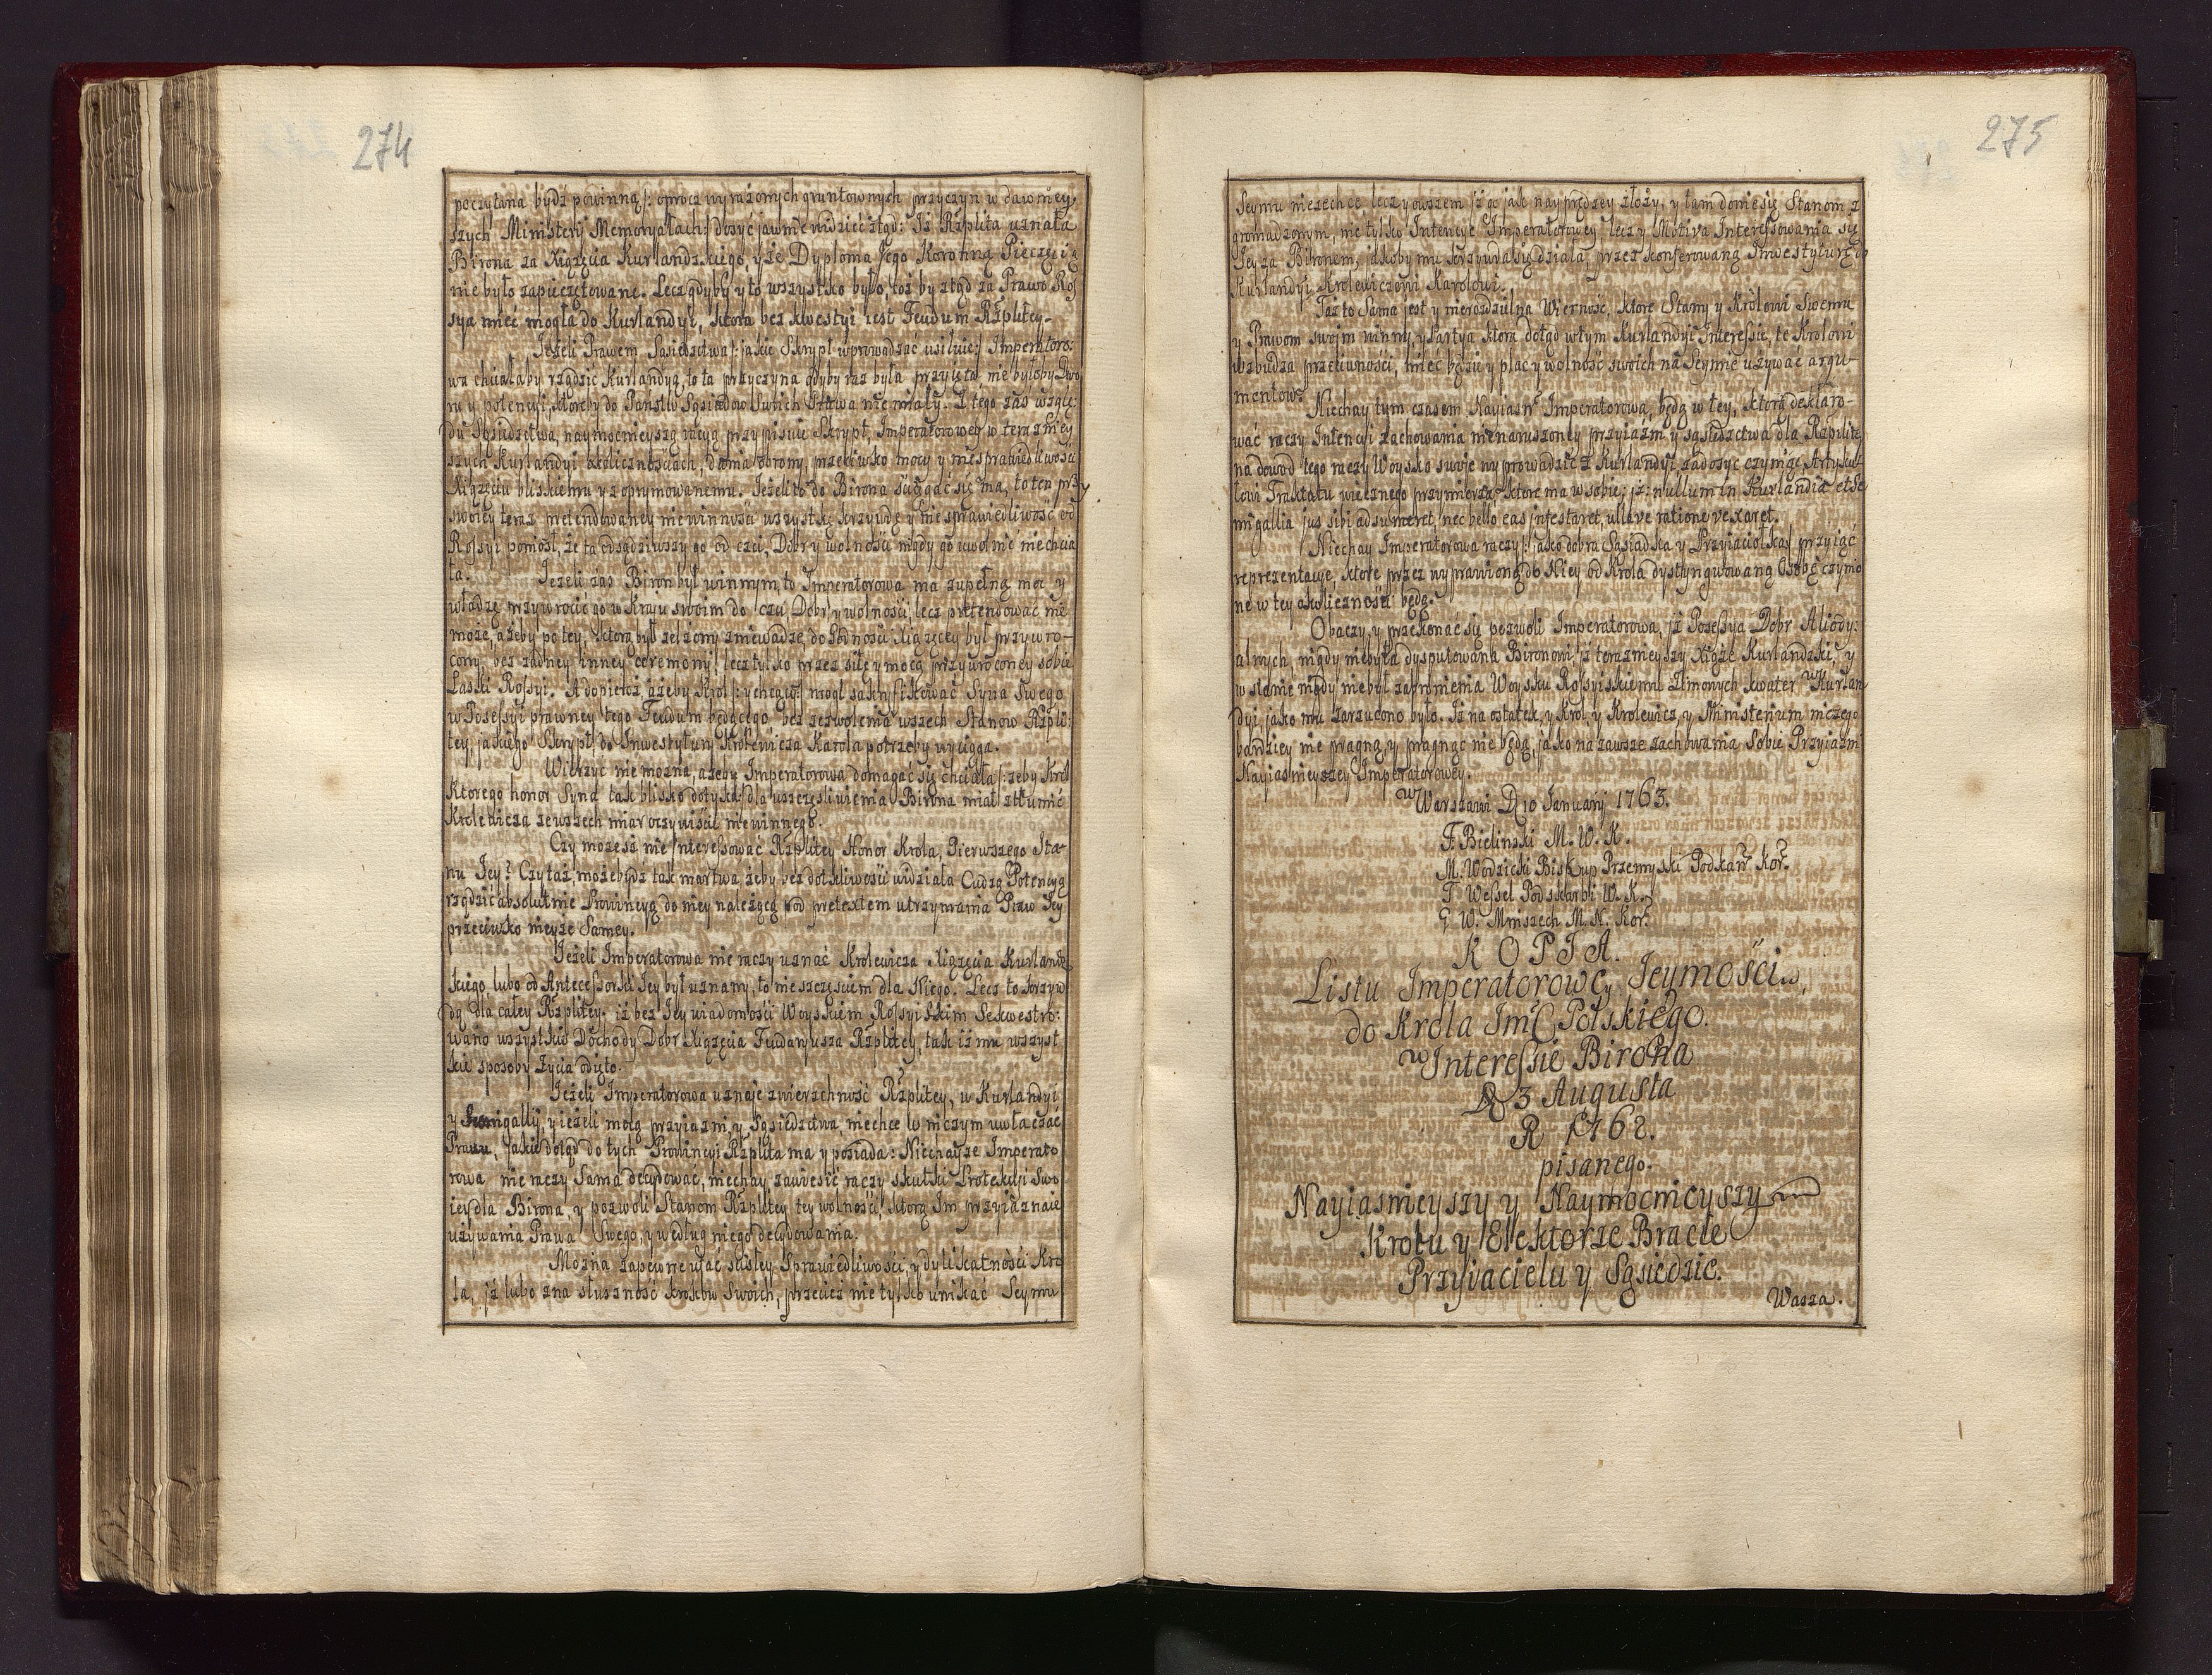 274
poczytana bydź powinna /: oprocz wyrażonych gruntownych przyczyn w dawniey,
szych Ministerij Memoryałach :/ dosyć jawnie widzieć ztąd: Iż Rzplita uznała
Birona za Xiążęcia Kurlandzkiego, y że Dyploma Jego Koronną Pieczęcią
nie było zapieczętowane. Lecz gdyby y to wszystko było, toż by ztąd za Prawo Ros
sya mieć mogła do Kurlandyi, ktora bez kwestyi iest Feudum Rzplitey.
Jeżeli Prawem Sąsiedztwa /: jakie Skrypt wprowadzać usiłuie :/ Imperatoro:
wa chciałaby rządzić Kurlandyą, to ta przyczyna gdyby raz była przyięta nie byłoby Dwo
ru y potencyi, ktoreby do Państw Sąsiadow Swoich Prawa nie miały. Z tego zas wzglę:
du Sąsiedztwa, naymocnieyszą racyą przypisuie Skrypt, Imperatorowey w teraźniey
szych Kurlandyi okolicznościach, dania obrony, przeciwko mocy y niesprawiedliwości
Xiążęciu bliskiemu y zoprymowanemu. Jeżeli to do Birona ściągać się ma, to ten przy
swoiey teraz pretendowaney niewinności wszystkę krzywdę y niesprawiedliwość od
Rossyi poniosł, że ta odsądziwszy go od czci, Dobr y wolności nigdy go uwolnić niechcia
ła. Jeżeli zaś Biron był winnym, to Imperatorowa ma zupełną moc y
władzę przywrocić go w Kraju swoim do czci, Dobr y wolności, lecz pretendować nie
może, ażeby po tey, ktorą był zelżony zniewadze, do Godności Xiążęcey był przywro-
cony, bez żadney inney ceremonij lecz tylko przez siłę y mocą przywroconey sobie
Łaski Rossyi. A dopieroż ażeby Krol /: y chcąc :/ mogł sakryfikować Syna Swego
w Possessyi prawney tego Feudum będącego bez zezwolenia wszech Stanow Rzpli:
tey, jakiego Skrypt do Inwestytury Krolewicza Karola potrzeby wyciąga.
Wierzyć nie można, ażeby Imperatorowa domagać się chciała /: żeby Krol
Ktorego honor Syna tak blisko dotyka :/ dla uszczęśliwienia Birona miał ztłumić
Krolewicza ze wszech miar oczywiście niewinnego.
Czy możesz nie interessować Rzplitey Honor Krola, Pierwszego Sta-
nu Jey? Czy taż, może bydź tak martwa, żeby bez dotkliwości widziała Cudzą Potencyą
rządzić absolutnie Prowincyą do niey należącą pod pretextem utrzymania Praw Jey
przeciwko nieyże Samey.
Jeżeli Imperatorowa nie raczy uznać Krolewicza Xiążęcia Kurlandz
kiego, lubo od Antecessorki Jey był uznany, to nieszczęściem dla Niego. Lecz to krzyw
dą dla całey Rzplitey. iż bez Jey wiadomości Woyskiem Rossyiskim Sekwestro:
wano wszystkie Dochody Dobr Xiążęcia Feudaryusza Rzplitey, tak iż mu wszyst
kie sposoby życia odięto.
Jeżeli Imperatorowa uznaje zwierzchność Rzplitey, w Kurlandyi
y Semigallij, y ieżeli mocą przyiaźni, y Sąsiedztwa, niechce w niczym uwłaczać
Prawu, jakie dotąd do tych Prowincyi Rzplita ma y posiada: Niechayże Imperato
rowa nie raczy Sama decydować, niechay zawiesić raczy skutki Protekcyi Swo
iey dla Birona, y pozwoli Stanom Rzplitey tey wolności, ktorą Im przyiaznaie
używania Prawa Swego, y według niego decydowania.
Można zapewne ufać ścisłey Sprawiedliwości, y dylikatności Kro
la, iż lubo zna słuszność krokow Swoich, przecież nie tylko unikać Seymu
275
Seymu niezechce lecz y owszem iż go jak nayprędzey złoży, y tam doniesie Stanom z
gromadzonym, nie tylko Intencye Imperatorowey, lecz y Motiva Interessowania się
Jey za Bironem, jakoby mu krzywda się działa, przez konferowaną Inwestyturę do
Kurlandyi Krolewiczowi Karolowi.
Taż to Sama jest y nierozdzielna Wierność, ktorę Stany y Krolowi Swemu
y Prawom swoim winny, y Partya ktora dotąd w tym Kurlandyi Interessie, te Krolowi
wzbudza przeciwności, mieć będzie y plac y wolność swoich na Seymie używać argu-
mentow.
Niechay tym czasem Nayiasń. Imperatorowa, będą w tey, ktorą deklaro-
wać raczy Intencyi zachowania nienaruszoney przyiaźni y sąsiedztwa dla Rzplitey
na dowod tego raczy Woysko swoje wyprowadzić z Kurlandyi, zadosyć czyniąc Artykuł
łowi Traktatu wiecznego przymierza, ktore ma w sobie; iż: nullum in Kurlandia et Se
migallia jus sibi adsumeret, nec bello eas infestaret, ullave ratione vexaret.
Niechay Imperatorowa raczy /: jako dobra Sąsiadka y Przyiaciołka :/ przyiąć
reprezentacye, ktore przez wyprawioną do Niey od Krola dystyngwowaną Osobę czynio
ne w tey okoliczności będą.
Obaczy, y przekonać się pozwoli Imperatorowa, iż Possessya Dobr Allody:
alnych, nigdy niebyła dysputowana Bironowi, iż teraznieyszy Xiąże Kurlandzki, y
w stanie nigdy niebył zabronienia Woysku Rossyiskiemu Zimonych kwater w Kurlan
dyi, jako mu zarzucono było. Iż na ostatek, y Krol y Krolewicz, y Ministerium niczego
bardziey nie pragną, y pragnąc nie będą, jako na zawsze zachowania Sobie Przyiaźni
Nayiasnieyszey Imperatorowey.
w Warszawi D. 10 Januarij 1763.
F. Bielinski M. W. K.
M. Wodzicki Biskup Przemyski Podkań. Kor.
F Wessel Podskarbi W. K.
G W. Mniszech M. N. Kor.
KOPIA.
Listu Imperatorowey Jeymości
do Krola Jmć Polskiego.
w Interessie Birona
D 3 Augusta
R 1762.
pisanego.
Nayiasnieyszy y Naymocnieyszy
Krolu y Elektorze Bracie
Przyiacielu y Sąsiedzie.
Wasza.